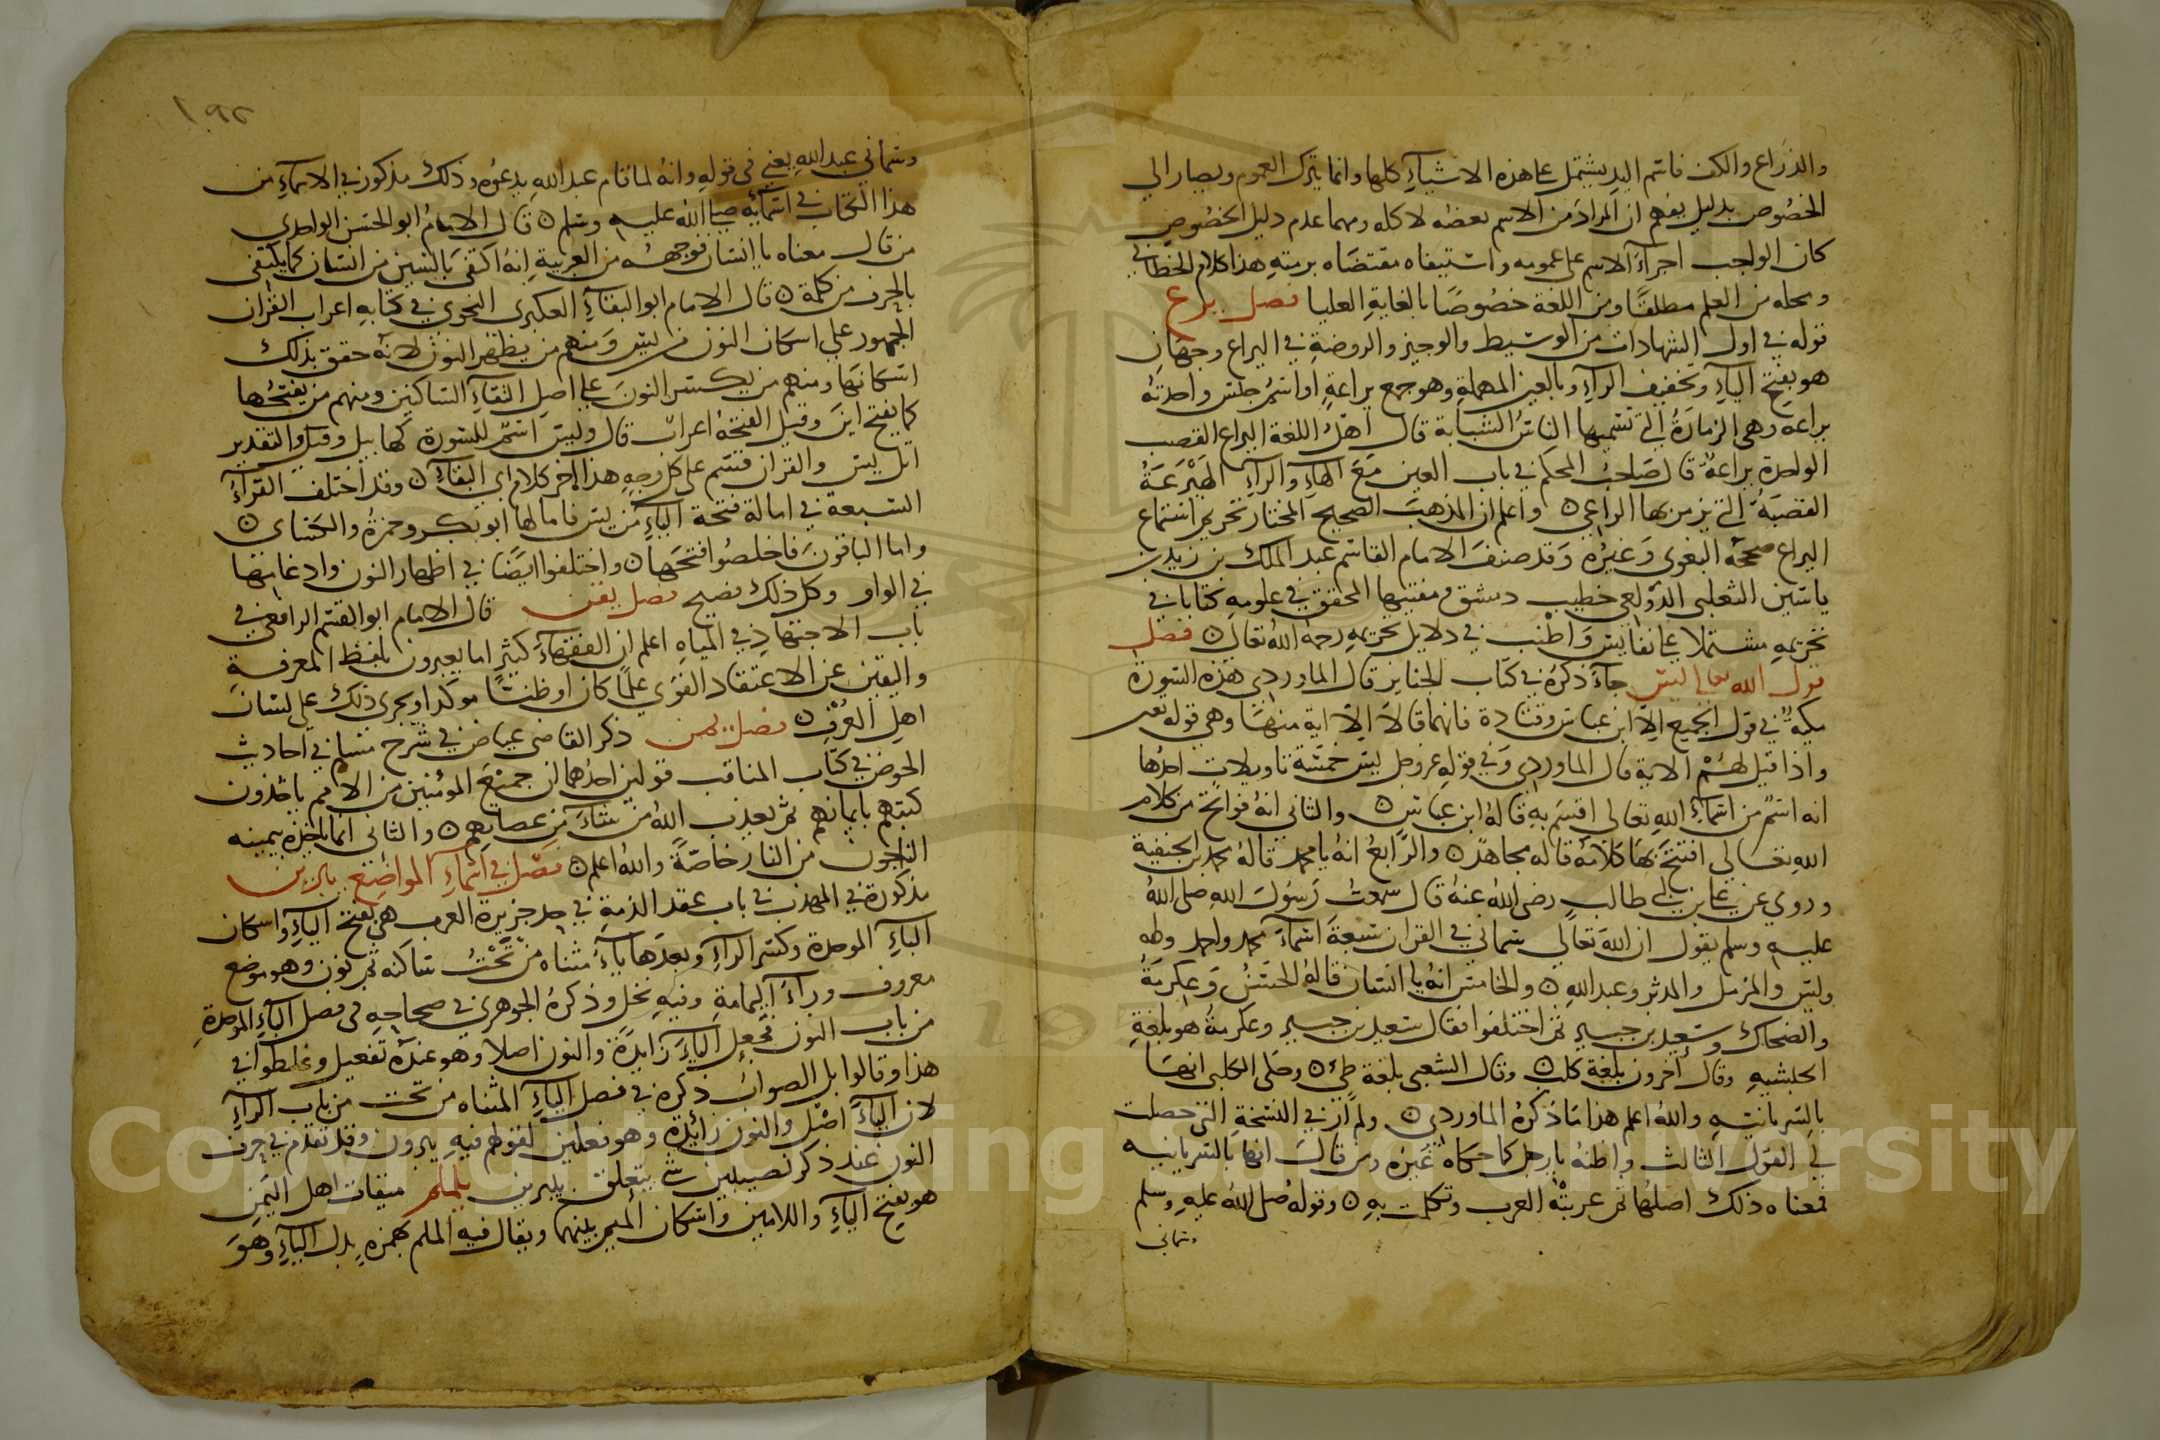 والذراع والكف فاسم اليد يشتمل على هذه الاشياء كلها وانما يترك العموم ويصار الى
الخصوص بدليل يفهم ان المراد من الاسم بعضه لا كله ومهما عدم دليل الخصوص
كان الواجب اجراء الاسم على عمومه واستيفاء مقتضاه برمته هذا كلام الخطابي
ومحله من العلم مطلقا ومن اللغة خصوصا بالغاية العليا فصل يرع
قوله في اول الشهادات من الوسيط والوجيز والروضة في اليراع وجهان
هو بفتح الياء وتخفيف الراء وبالعين المهملة وهو جمع يراعة او اسم جنس واحدته
يراعة وهي الزمارة التي تسميها الناس الشبابة قال اهل اللغة اليراع القصب
الواحدة يراعة قال صاحب المحكم في باب العين مع الهاء والراء الهيرعة
القصبة التي يزمر بها الراعي ٥ واعلم ان المذهب الصحيح المختار تحريم استماع
اليراع صححه البغوي وغيره وقد صنف الامام القاسم عبد الملك بن زيد بن
ياسين الثعلبي الدولعي خطيب دمشق ومفتيها المحقق في علومه كتابا في
تحريمه مشتملا على نفايس واطنب في دلايل تحريمه رحمه الله تعالى ٥ فصل
قول الله تعالى يس جاء ذكره في كتاب الجنايز قال الماوردي هذه السورة
مكية في قول الجميع الا ابن عباس وقتادة فانهما قالا الا اية منها وهي قوله تعالى
واذا قيل لهم الاية قال الماوردي وفي قوله عز وجل يس خمسة تاويلات احدها
انه اسم من اسماء الله تعالى اقسم به قاله ابن عباس ٥ والثاني انه فواتح من كلام
الله تعالى افتتح بها كلامه قاله مجاهد ٥ والرابع انه يا محمد قاله محمد بن الحنفية
وروي عن علي بن ابي طالب رضى الله عنه قال سمعت رسول الله صلى الله
عليه وسلم يقول ان الله تعالى سماني في القران سبعة اسماء محمد واحمد وطه
ويس والمزمل والمدثر وعبد الله ٥ والخامس انه يا انسان قاله الحسن وعكرمة
والضحاك وسعيد بن جبير ثم اختلفوا فقال سعيد بن جبير وعكرمة هو بلغة
الحبشية وقال اخرون بلغة كلب ٥ وقال الشعبي بلغة طي ٥ وحكى الكلبي انها
بالسريانية والله اعلم هذا ما ذكره الماوردي ٥ ولم ار في النسخة التي حصلت
لي القول الثالث واظنه يا رجل كما حكاه غيره ومن قال انها بالسريانية
فمعناه ذلك اصلها ثم عربته العرب وتكلمت به ٥ وقوله صلى الله عليه وسلم
وسماني
١٠٩٢
وسماني عبد الله يعني في قوله وانه لما قام عبد الله يدعوه وذلك مذكور في الاسماء من
هذا الكتاب في اسمائه صلى الله عليه وسلم ٥ قال الامام ابو الحسن الواحدي
من قال معناه يا انسان فوجهه من العربية انه اكتفى بالسين من انسان كما يكتفى
بالحرف من كلمة ٥ قال الامام ابو البقاء العكبرى النحوي في كتابه اعراب القران
الجمهور على اسكان النون من يس ومنهم من يظهر النون لانه حقق بذلك
اسكانها ومنهم من يكسر النون على اصل التقاء الساكنين ومنهم من يفتحها
كما يفتح اين وقيل الفتحة اعراب قال وليس اسم للسورة كهابيل وقيل والتقدير
اتل يس والقران قسم على كل وجه هذا اخر كلام ابي البقاء ٥ وقد اختلف القراء
السبعة في امالة فتحة الياء من يس فامالها ابو بكر وحمزة والكسائي ٥
واما الباقون فاخلصوا فتحها ٥ واختلفوا ايضا في اظهار النون وادغامها
في الواو وكل ذلك فصيح فصل يقن قال الامام ابو القسم الرافعي في
باب الاجتهاد في المياه اعلم ان الفقهاء كثيرا ما يعبرون بلفظ المعرفة
واليقين عن الاعتقاد القوي علما كان او ظنا موكدا ويجرى ذلك على لسان
اهل العرف ٥ فصل يمن ذكر القاضي عياض في شرح مسلم في احاديث
الحوض في كتاب المناقب قولين احدهما ان جميع المومنين من الامم ياخذون
كتبهم بايمانهم ثم يعذب الله من شاء من عصاتهم ٥ والثاني انما ياخذه بيمينه
الناجون من النار خاصة والله اعلم ٥ فصل في اسماء المواضع يبرين
مذكورة في المهذب في باب عقد الذمة في حد جزيرة العرب هي بفتح الياء واسكان
الباء الموحدة وكسر الراء وبعدها ياء مثناه من تحت ساكنة ثم نون وهو موضع
معروف وراء اليمامة وفيه نخل وذكره الجوهري في صحاحه في فصل الباء الموحدة
من باب النون فجعل الياء زايدة والنون اصلا وهو عنده تفعيل وغلطوا في
هذا وقالوا بل الصواب ذكره في فصل الياء المثناه من تحت من باب الراء
لان الياء اصل والنون زائدة وهو فعلين لقولهم فيه يبرون وقد تقدم في حرف
النون عند ذكر نصيبين شي يتعلق بيبرين يلملم ميقات اهل اليمن
هو بفتح الياء واللامين واسكان الميم بينهما ويقال فيه الملم بهمزة بدل الياء وهو
Copyright © King Saud University